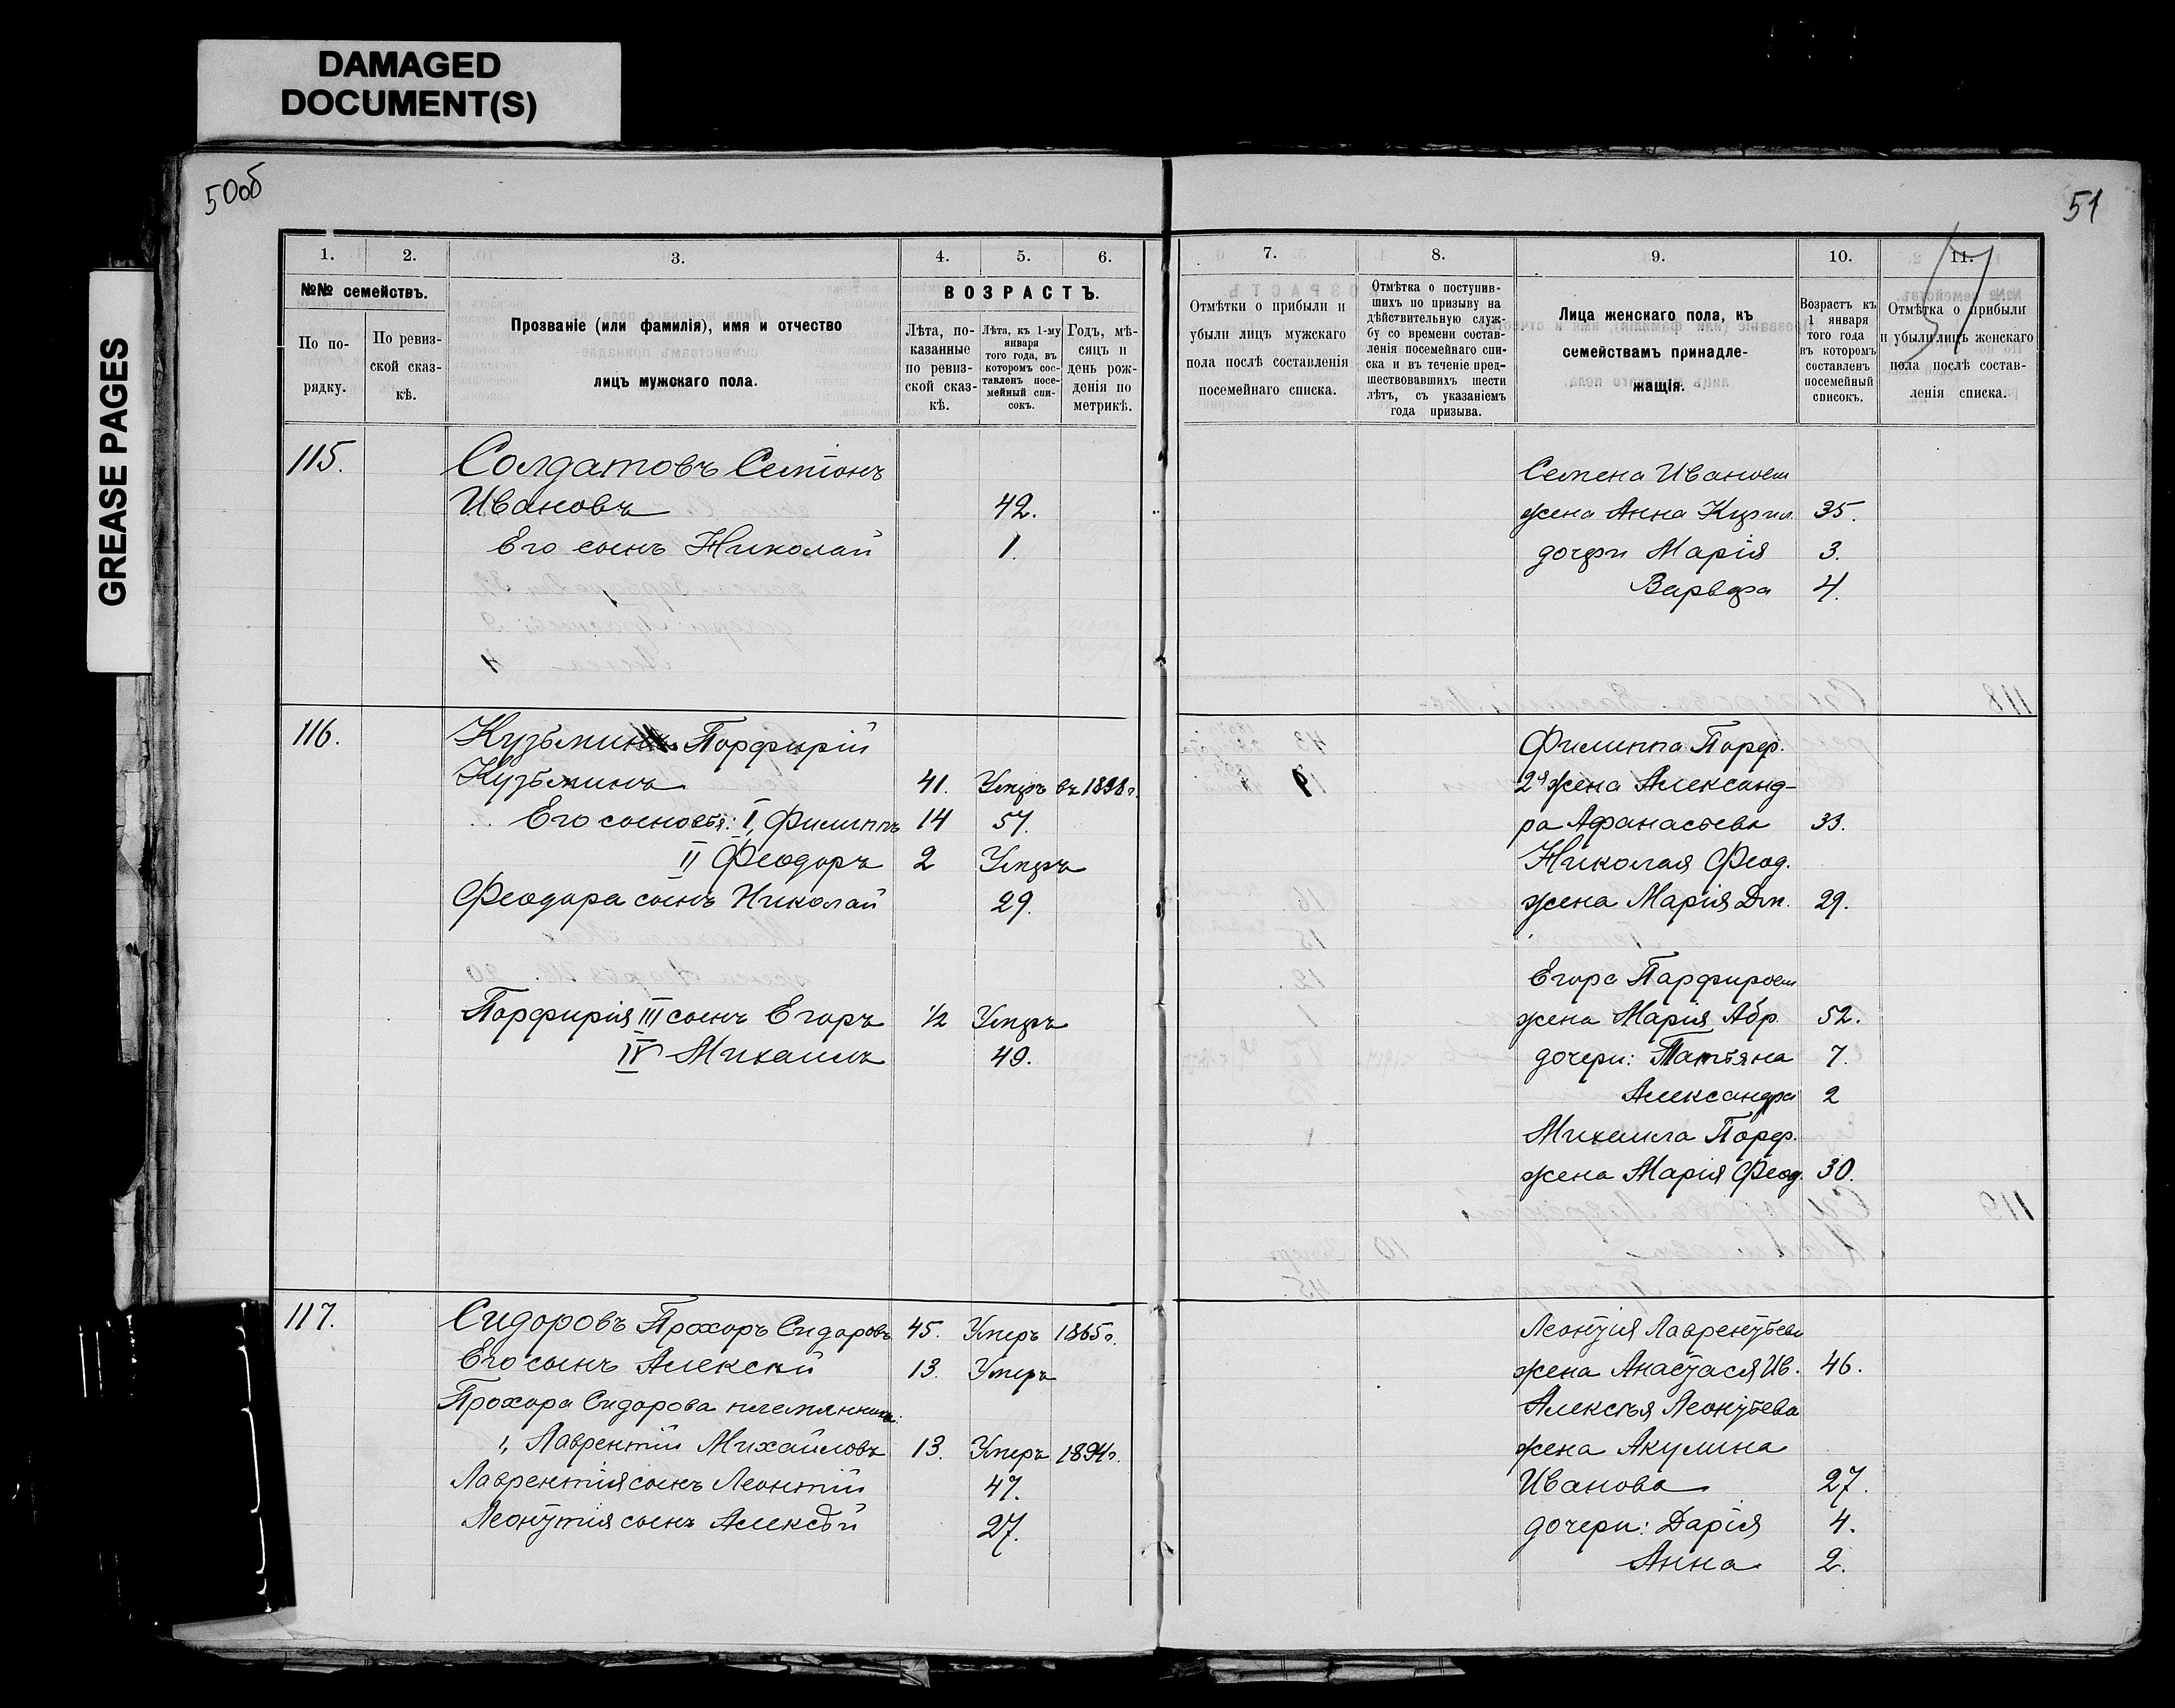 DAMAGED
DOCUMENT(S)
GREASE PAGES
50об
51
57
1. 2. 3. 4. 5. 6.
№№ семействъ.
По по-
рядку.
По ревиз-
ской сказ-
кѣ.
Прозваніе (или фамилія), имя и отчество
лицъ мужскаго пола.
ВОЗРАСТЪ.
Лѣта, по-
казанные
по ревиз-
ской сказ-
кѣ.
Лѣта, къ 1-му
января
того года, въ
которомъ сос-
тавленъ посе-
мейный спи-
сокъ.
Годъ, мѣ-
сяцъ и
день рож-
денія по
метрикѣ.
7. 8. 9. 10. 11.
Отмѣтки о прибыли и
убыли лицъ мужскаго
пола послѣ составленія
посемейнаго списка.
Отмѣтка о поступив-
шихъ по призыву на
дѣйствительную служ-
бу со времени состав-
ленія посемейнаго спи-
ска и въ теченіе пред-
шествовавшихъ шести
лѣтъ, съ указаніемъ
года призыва.
Лица женскаго пола, къ
семействамъ принадле-
жащія.
Возрастъ къ
1 января
того года
въ которомъ
составленъ
посемейный
списокъ.
Отмѣтка о прибыли
и убыли лицъ женскаго
пола послѣ состав-
ленія списка.
115. Солдатовъ Семіонъ
Ивановъ 42.
Его сынъ Николай 1.
Семена Иванов
жена Анна Кирил. 35.
дочери Марія 3.
Варвара 4.
116. Кузьминъ Порфирій
Кузьминъ 41. Умеръ въ 1898 г.
Его сыновья: I, Филиппъ 14 57.
II Феодоръ 2 Умеръ
Феодора сынъ Николай 29.
Порфирія III сынъ Егоръ 1/2 Умеръ
IV Михаилъ 49.
Филиппа Порф.
2я жена Александ-
ра Афанасьева 33.
Николая Феод.
жена Марія Дм. 29.
Егора Парфиров
жена Марія Абр. 52.
дочери: Татьяна 7.
Александра 2
Михаила Порф.
жена Марія Феод. 30.
117. Сидоровъ Прохоръ Сидоровъ 45. Умеръ 1865 г.
Его сынъ Алексѣй 13. Умеръ
Прохора Сидорова племянники:
1, Лаврентій Михайловъ 13. Умеръ 1894 г.
Лаврентія сынъ Леонтій 47.
Леонтія сынъ Алексѣй 27.
Леонтія Лаврентьева
жена Анастася Ив. 46.
Алексѣя Леонтьева
жена Акулина
Иванова 27.
дочери: Дарія 4.
Анна 2.